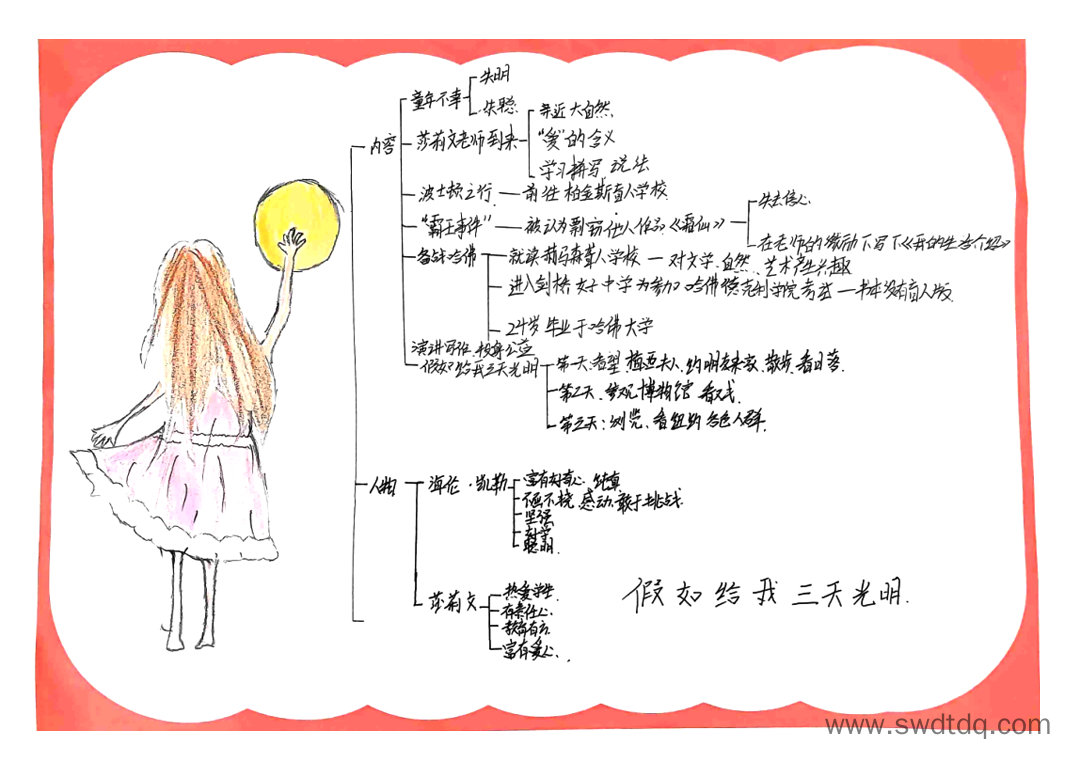 内容
童年不幸
失明
失聪
莎莉文老师到来
亲近大自然
"爱"的含义
学习拼写、说法
波士顿之行
前往柏金斯盲人学校
"霸王事件"
被认为剽窃他人作品《霜仙》
失去信心
在老师的激励下写下《我的生活介绍》
备战哈佛
就读莱马森聋人学校
对文学、自然、艺术产生兴趣
进入剑桥女子中学为参加哈佛德克利学院考试
书本没有盲人版
24岁毕业于哈佛大学
演讲写作,投身公益
假如给我三天光明
第一天:看望梅西夫人、约朋友来家、散步、看日落
第二天、参观博物馆 看戏
第三天:浏览、看纽约各色人群
人物
海伦·凯勒
富有好奇心、纯真
不屈不挠 感动 敢于挑战
坚强
聪明
莎莉文
热爱学生
有责任心
教育有方
富有爱心
假如给我三天光明
www.swdtdq.com